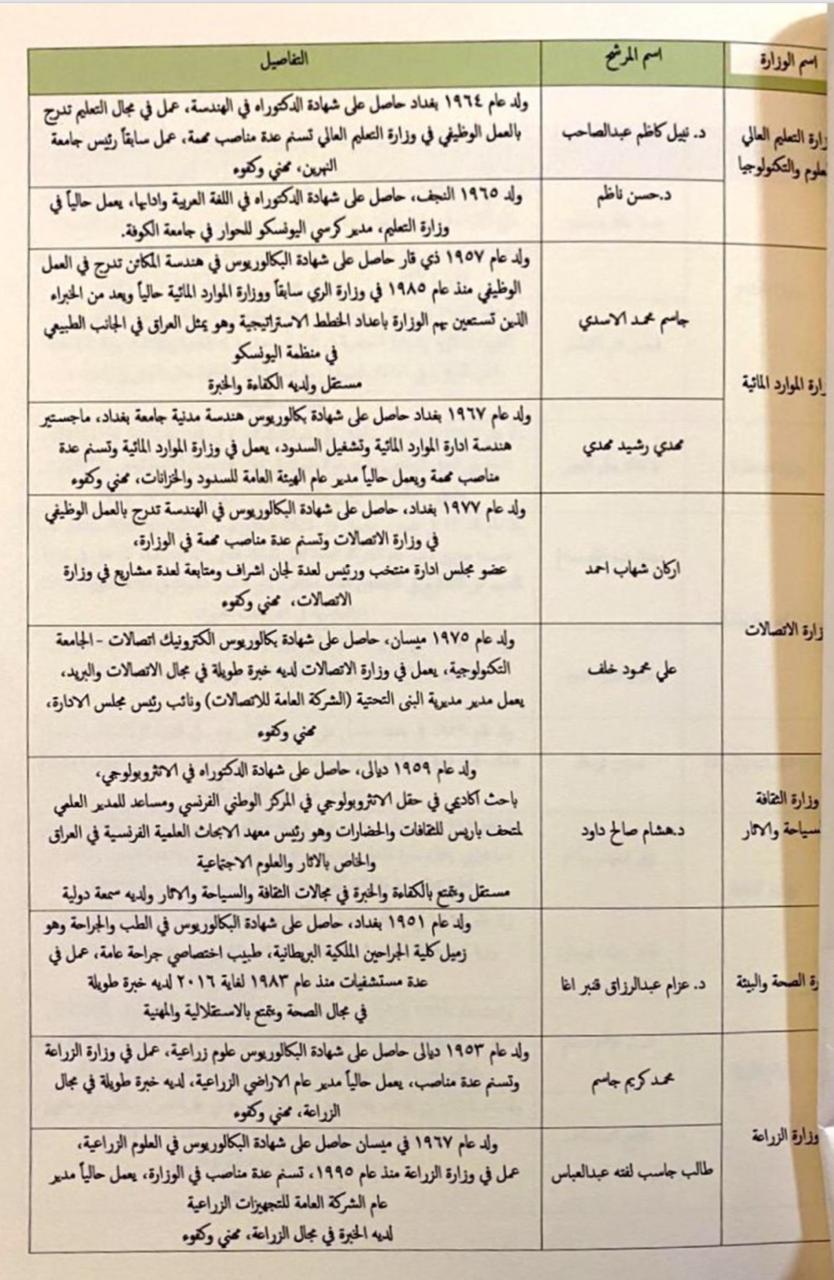 اسم الوزارة
اسم المرشح
التفاصيل
زارة التعليم العالي
لعلوم والتكنولوجيا
د. نبيل كاظم عبدالصاحب
ولد عام ١٩٦٤ بغداد حاصل على شهادة الدكتوراه في الهندسة، عمل في مجال التعليم تدرج
بالعمل الوظيفي في وزارة التعليم العالي تسنم عدة مناصب مهمة، عمل سابقاً رئيس جامعة
النهرين، مهني وكفوء
د.حسن ناظم
ولد ١٩٦٥ النجف، حاصل على شهادة الدكتوراه في اللغة العربية وادابها، يعمل حالياً في
وزارة التعليم، مدير كرسي اليونسكو للحوار في جامعة الكوفة.
زارة الموارد المائية
جاسم محمد الاسدي
ولد عام ١٩٥٧ ذي قار حاصل على شهادة البكالوريوس في هندسة المكائن تدرج في العمل
الوظيفي منذ عام ١٩٨٥ في وزارة الري سابقاً ووزارة الموارد المائية حالياً ويعد من الخبراء
الذين تستعين بهم الوزارة باعداد الخطط الاستراتيجية وهو يمثل العراق في الجانب الطبيعي
في منظمة اليونسكو
مستقل ولديه الكفاءة والخبرة
مهدي رشيد مهدي
ولد عام ١٩٦٧ بغداد حاصل على شهادة بكالوريوس هندسة مدنية جامعة بغداد، ماجستير
هندسة ادارة الموارد المائية وتشغيل السدود، يعمل في وزارة الموارد المائية وتسنم عدة
مناصب مهمة ويعمل حالياً مدير عام الهيئة العامة للسدود والخزانات، مهني وكفوء
زارة الاتصالات
اركان شهاب احمد
ولد عام ١٩٧٧ بغداد، حاصل على شهادة البكالوريوس في الهندسة تدرج بالعمل الوظيفي
في وزارة الاتصالات وتسنم عدة مناصب مهمة في الوزارة،
عضو مجلس ادارة منتخب ورئيس لعدة لجان اشراف ومتابعة لعدة مشاريع في وزارة
الاتصالات، مهني وكفوء
علي محمود خلف
ولد عام ١٩٧٥ ميسان، حاصل على شهادة بكالوريوس الكترونيك اتصالات - الجامعة
التكنولوجية، يعمل في وزارة الاتصالات لديه خبرة طويلة في مجال الاتصالات والبريد،
يعمل مدير مديرية البنى التحتية (الشركة العامة للاتصالات) ونائب رئيس مجلس الادارة،
مهني وكفوء
وزارة الثقافة
لسياحة والاثار
د.هشام صالح داود
ولد عام ١٩٥٩ ديالى، حاصل على شهادة الدكتوراه في الانثروبولوجي،
باحث اكاديمي في حقل الانثروبولوجي في المركز الوطني الفرنسي ومساعد للمدير العلمي
لمتحف باريس للثقافات والحضارات وهو رئيس معهد الابحاث العلمية الفرنسية في العراق
والخاص بالاثار والعلوم الاجتماعية
مستقل ويتمتع بالكفاءة والخبرة في مجالات الثقافة والسياحة والاثار ولديه سمعة دولية
رة الصحة والبيئة
د. عزام عبدالرزاق قنبر اغا
ولد عام ١٩٥١ بغداد، حاصل على شهادة البكالوريوس في الطب والجراحة وهو
زميل كلية الجراحين الملكية البريطانية، طبيب اختصاصي جراحة عامة، عمل في
عدة مستشفيات منذ عام ١٩٨٣ لغاية ٢٠١٦ لديه خبرة طويلة
في مجال الصحة ويتمتع بالاستقلالية والمهنية
وزارة الزراعة
محمد كريم جاسم
ولد عام ١٩٥٣ ديالى حاصل على شهادة البكالوريوس علوم زراعية، عمل في وزارة الزراعة
وتسنم عدة مناصب، يعمل حالياً مدير عام الاراضي الزراعية، لديه خبرة طويلة في مجال
الزراعة، مهني وكفوء
طالب جاسب لفته عبدالعباس
ولد عام ١٩٦٧ في ميسان حاصل على شهادة البكالوريوس في العلوم الزراعية،
عمل في وزارة الزراعة منذ عام ١٩٩٥، تسنم عدة مناصب في الوزارة، يعمل حالياً مدير
عام الشركة العامة للتجهيزات الزراعية
لديه الخبرة في مجال الزراعة، مهني وكفوء